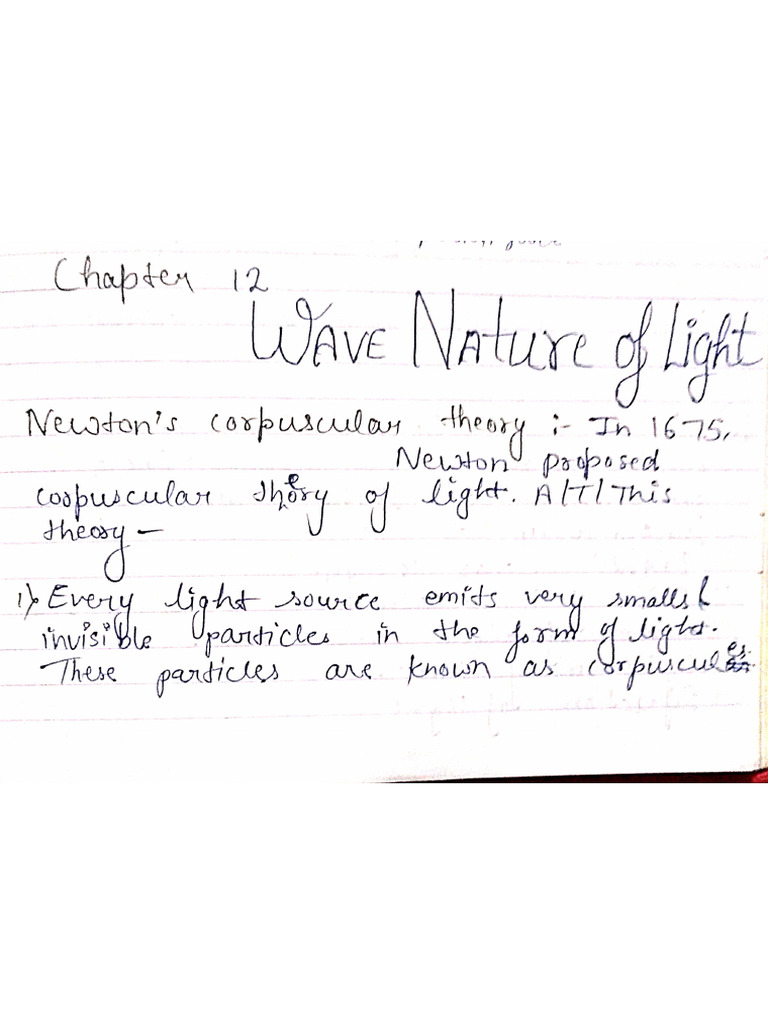 Chapter 12
WAVE NATURE of Light
Newton's corpuscular theory :- In 1675,
Newton proposed
corpuscular theory of light. A/T/This
theory —
1) Every light source emits very small &
invisible particles in the form of light.
These particles are known as corpuscules.